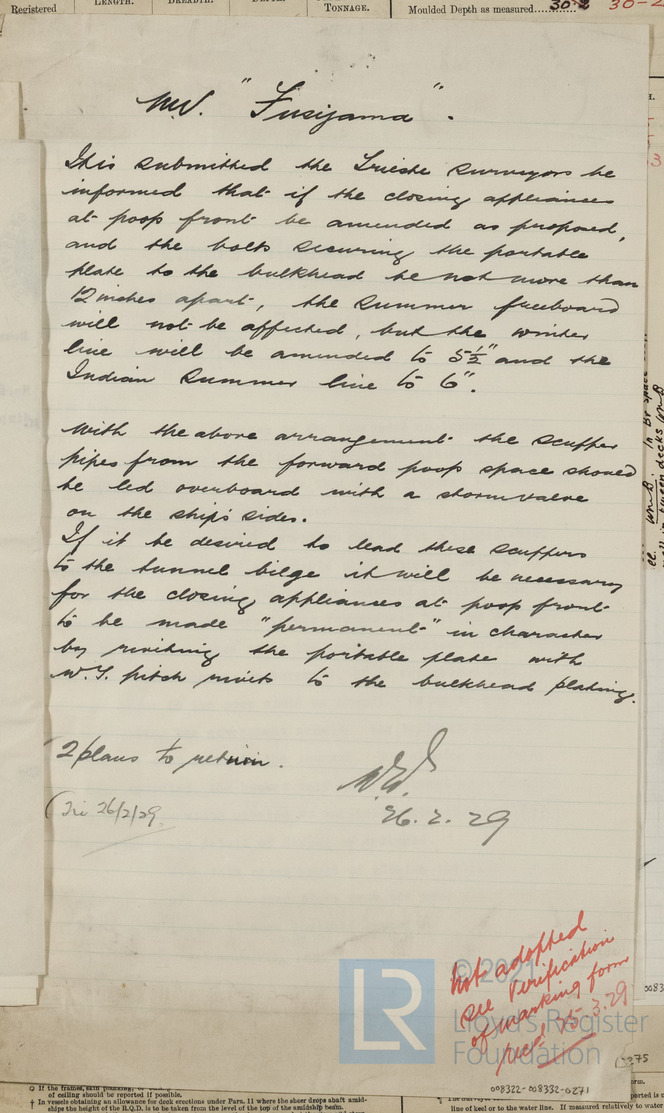 Registered
LENGTH.
BREADTH.
DEPTH.
TONNAGE.
Moulded Depth as measured............ 30-2
30-2
M.V. "Fusijama".
It is submitted the Trieste surveyors be
informed that if the closing appliances
at poop front be amended as proposed,
and the bolts securing the portable
plate to the bulkhead be not more than
12 inches apart, the summer freeboard
will not be affected, but the winter
line will be amended to 5½" and the
Indian Summer line to 6".
With the above arrangement the scupper
pipes from the forward poop space should
be led overboard with a storm valve
on the ship's sides.
If it be desired to lead these scuppers
to the tunnel bilge it will be necessary
for the closing appliances at poop front
to be made "permanent" in character
by riveting the portable plate with
W.T. pitch rivets to the bulkhead plating.
2 plans to return.
26.2.29
(Tri 26/2/29
not adopted
see verification
of marking form
recd 15-3.29
© 2021
LR
Lloyd's Register
Foundation
0275
008322-008332-0271
If the frames, skin planking,
of ceiling should be reported if possible.
† In vessels obtaining an allowance for deck erections under Para. 11 where the sheer drops abaft amid-
ships the height of the R.Q.D. is to be taken from the level of the top of the amidship beam.
line of keel or to the water line. If measured relatively to water
in Br space
'tween decks